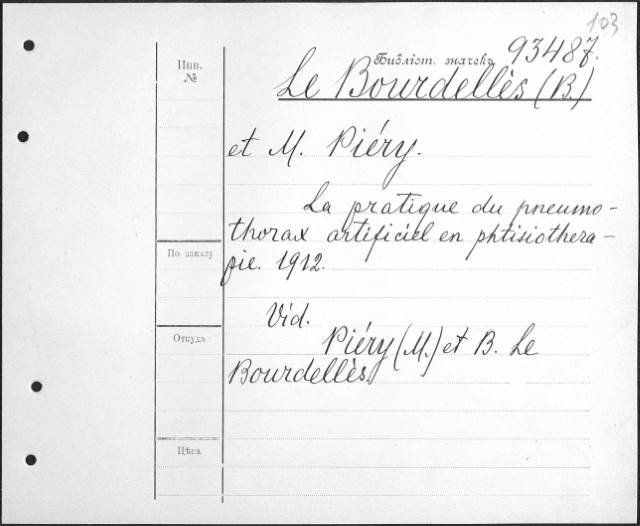 103
Инв.
№
Библіот. значекъ 93487.
Le Bourdellès (B.)
et M. Piéry.
La pratique du pneumo-
thorax artificiel en phtisiothera-
pie. 1912.
По заказу
Vid.
Откудъ
Piéry (M.) et B. Le
Bourdellès.
Цѣна